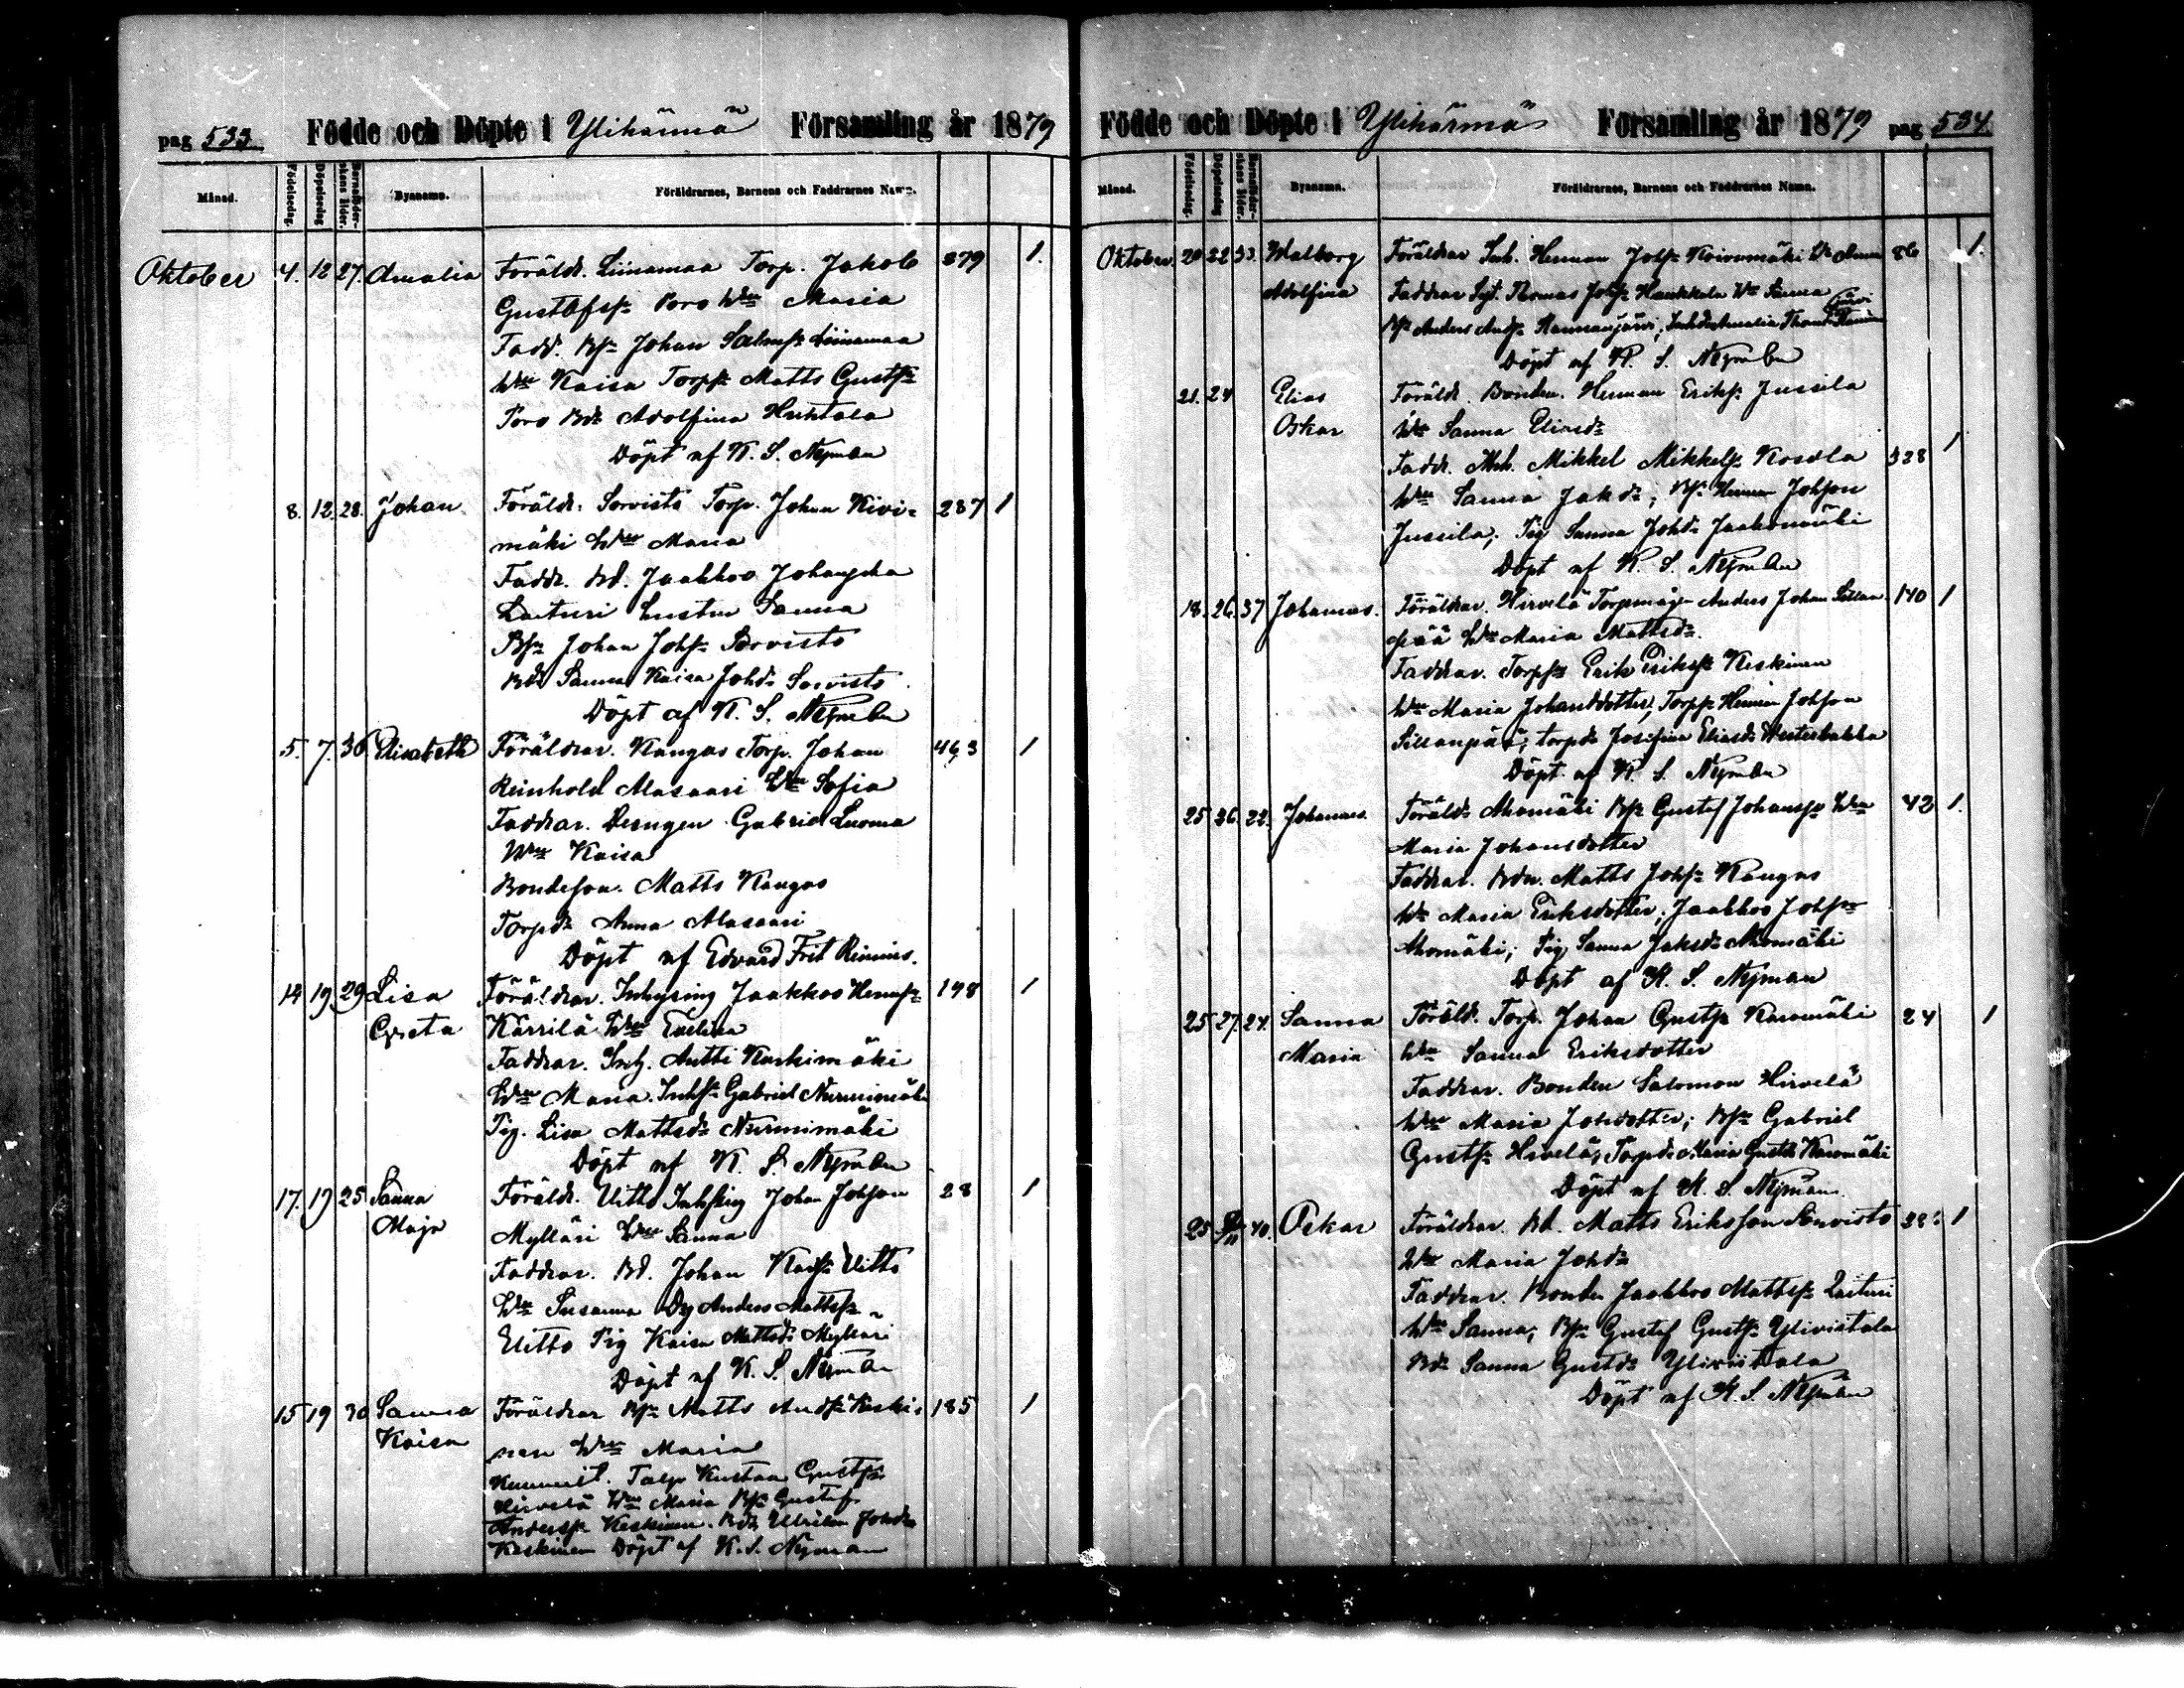 pag 533. Födde och Döpte i Ylihärmä Församling år 1879
Månad. Födelsedag. Döpelsedag Barnaföder-skans ålder. Byanamn. Föräldrarnes, Barnens och Faddrarnes Namn.
Oktober 4. 12 27. Amalia Föräldr. Liinamaa Torp. Jakob 379 1.
Gustafss. Poro hu Maria
Fadd. Bs. Johan Liinamaa
hu Kaisa Torps. Matts Gusts.
Poro Bd. Adolfina Huhtala
Döpt af K. S. Nyman
8. 12. 28. Johan Föräldr. Sorvisto Torp. Johan Kivi- 287 1
mäki hu Maria
Faddr. Bd. Jaakkoo
Laituri hustru Sanna
Bs. Johan Johs. Sorvisto
Bd. Sanna Kaisa Johd. Sorvisto
Döpt af K. S. Nyman
5. 7. 36. Elisabeth Föräldrar. Kangas Torp. Johan 463 1
Reinhold Alasaari hu Sofia
Faddrar. Drengen Gabriel Luoma
hu Kaisa
Bondeson. Matts Kangas
Torpd. Anna Alasaari
Döpt af Edvard Frit
14 19. 29 Lisa Föräldrar. Inhysing Jaakkoo 198 1
Greta Kärrilä hu Evelina
Faddrar. Inh. Antti Kaskimäki
hu Maria. Inhs. Gabriel Nurmimäki
Pig. Lisa Mattsd. Nurmimäki
Döpt af K. S. Nyman
17. 19 25 Sanna Föräldr. Uitto Inhysing Johan Johsson 28 1
Maja Mylläri hu Sanna
Faddrar. Bd. Johan Uitto
hu Susanna Dg Anders Mattss.
Uitto Pig Kaisa Mattsd. Mylläri
Döpt af K. S. Nyman
15 19 30 Sanna Föräldrar Bs. Matts Ands. Keski- 185 1
Kaisa nen hu Maria
Kustaa Gusts.
Hirvelä hu Maria Bs. Gustaf
Anderss. Keskinen. Bd. Johd.
Keskinen Döpt af K. S. Nyman
Födde och Döpte i Ylihärmä Församling år 1879 pag 534.
Månad. Födelsedag. Döpelsedag Barnaföder-skans ålder. Byanamn. Föräldrarnes, Barnens och Faddrarnes Namn.
Oktober 20 22 33. Walborg Föräldrar Inh. Herman Johs. Koivumäki hu Anna 86 1.
Adolfina Faddrar Thomas Johs. hu Sanna
Bs. Anders Ands. Amalia
Döpt af K. S. Nyman
21. 24 Elias Föräldr. Bonden. Herman Eriks. Jussila
Oskar hu Sanna Eliasd.
Faddr. Mikkel Mikkels. Kosola 328 1
hu Sanna Jakd.; Bs. Herman Johsson
Jussila; Pig Sanna Johd. Jaakonmäki
Döpt af K. S. Nyman
18. 26. 37 Johannes. Föräldrar. Hirvelä Anders Johan Sillan- 140 1
pää hu Maria Mattsd.
Faddrar. Torps. Erik Eriks. Keskinen
hu Maria Johansdotter, Torps. Herman Johsson
Sillanpää; torpd. Josefina Eliasd. Westerbakka
Döpt af K. S. Nyman
25 26. 22. Johannes. Föräld. Ahomäki Bs. Gustaf Johanss. hu 43 1.
Maria Johansdotter
Faddrar. Bdn. Matts Johs. Kangas
hu Maria Eriksdotter; Jaakkoo Johsson
Ahomäki; Pig Sanna Jaksd. Ahomäki
Döpt af K. S. Nyman
25 27. 24. Sanna Föräld. Torp. Johan Gusts. Karomäki 24 1
Maria hu Sanna Eriksdotter
Faddrar. Bonden Salomon Hirvelä
hu Maria Johsdotter; Bs. Gabriel
Gusts. Hirvelä, Torpd. Maria Gustd. Karomäki
Döpt af K. S. Nyman.
25 40. Oskar Föräldrar. Bd. Matts Eriksson Sorvisto 1
hu Maria Johd.
Faddrar. Bonden Jaakkoo Mattss. Laituri
hu Sanna; Bs. Gustaf Gusts. Yliviitala
Bd. Sanna Gustd. Yliviitala
Döpt af K. S. Nyman